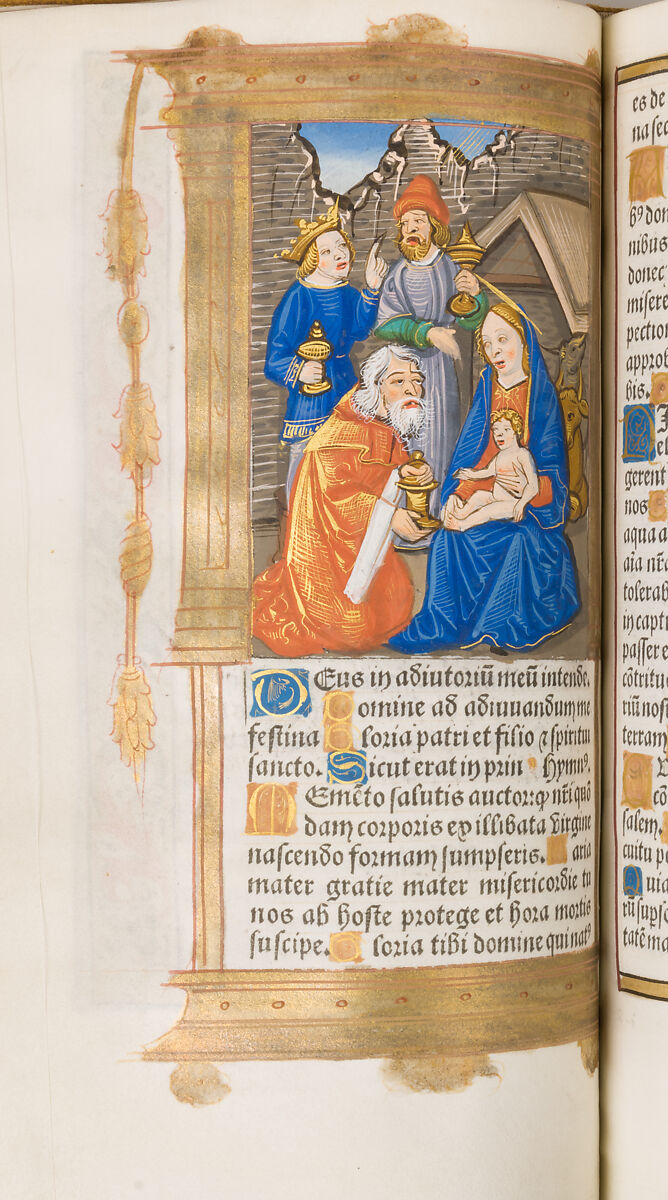 Deus in adiutoriū meū intende.
Domine ad adiuuandum me
festina Gloria patri et filio ⁊ spiritui
sancto. Sicut erat in prin Hymnꝰ.
Memēto salutis auctor: ꝙ nr̄i quō
dam corporis ex illibata virgine
nascendo formam sumpseris. Maria
mater gratie mater misericordie tu
nos ab hoste protege et hora mortis
suscipe. Gloria tibi domine qui natꝰ
es de
na sec
nibus
donec
misere
pection
approb
bis.
gerent
nos
aqua a
aīa nr̄a
tolerab
in capti
passer e
cōtritu
riū nost
terram
cō
salem.
cuitu po
Quia
rū sup̱ so
tatē ma